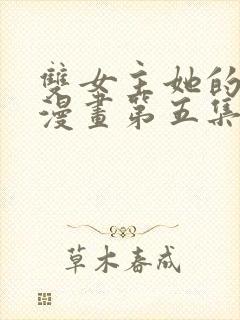 雙女主她的
漫畫第五集
草木春成